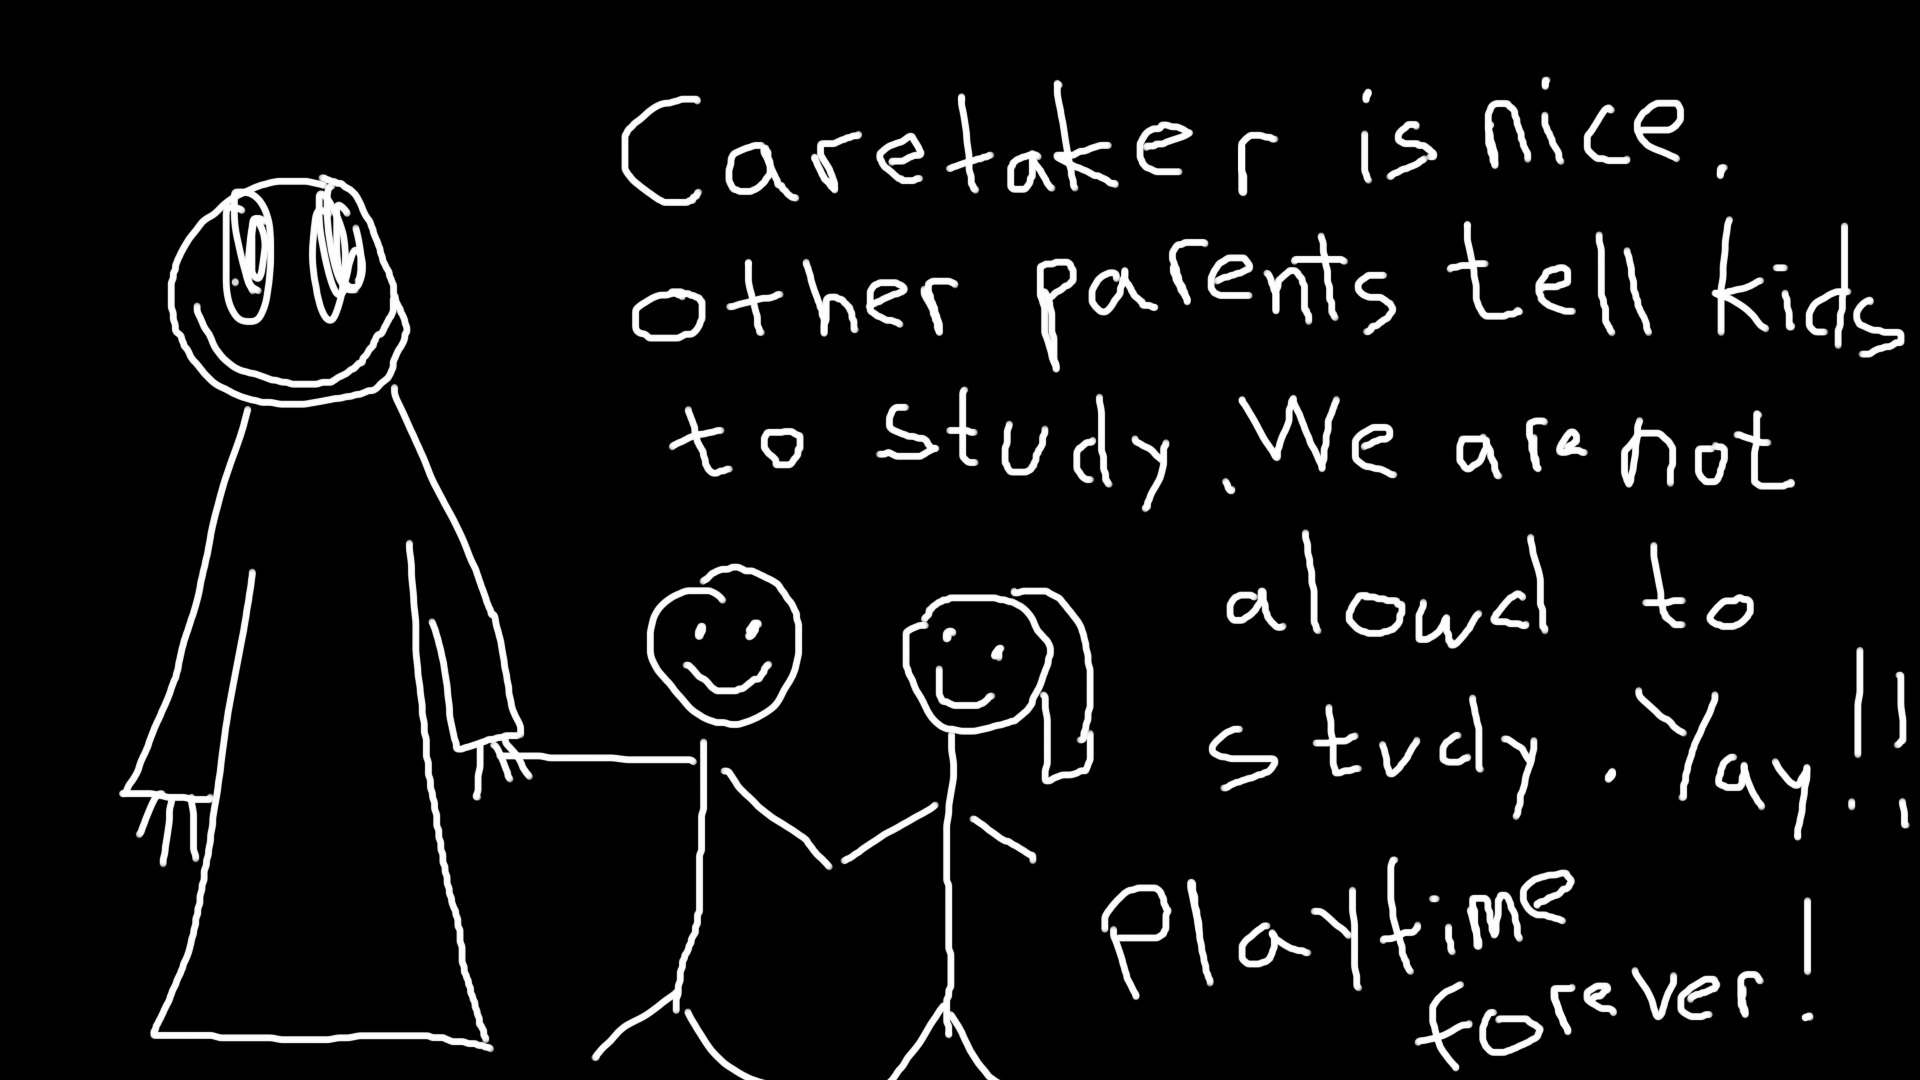 Caretaker is nice.
other parents tell kids
to study. We are not
alowd to
study. Yay!!
Playtime
forever!